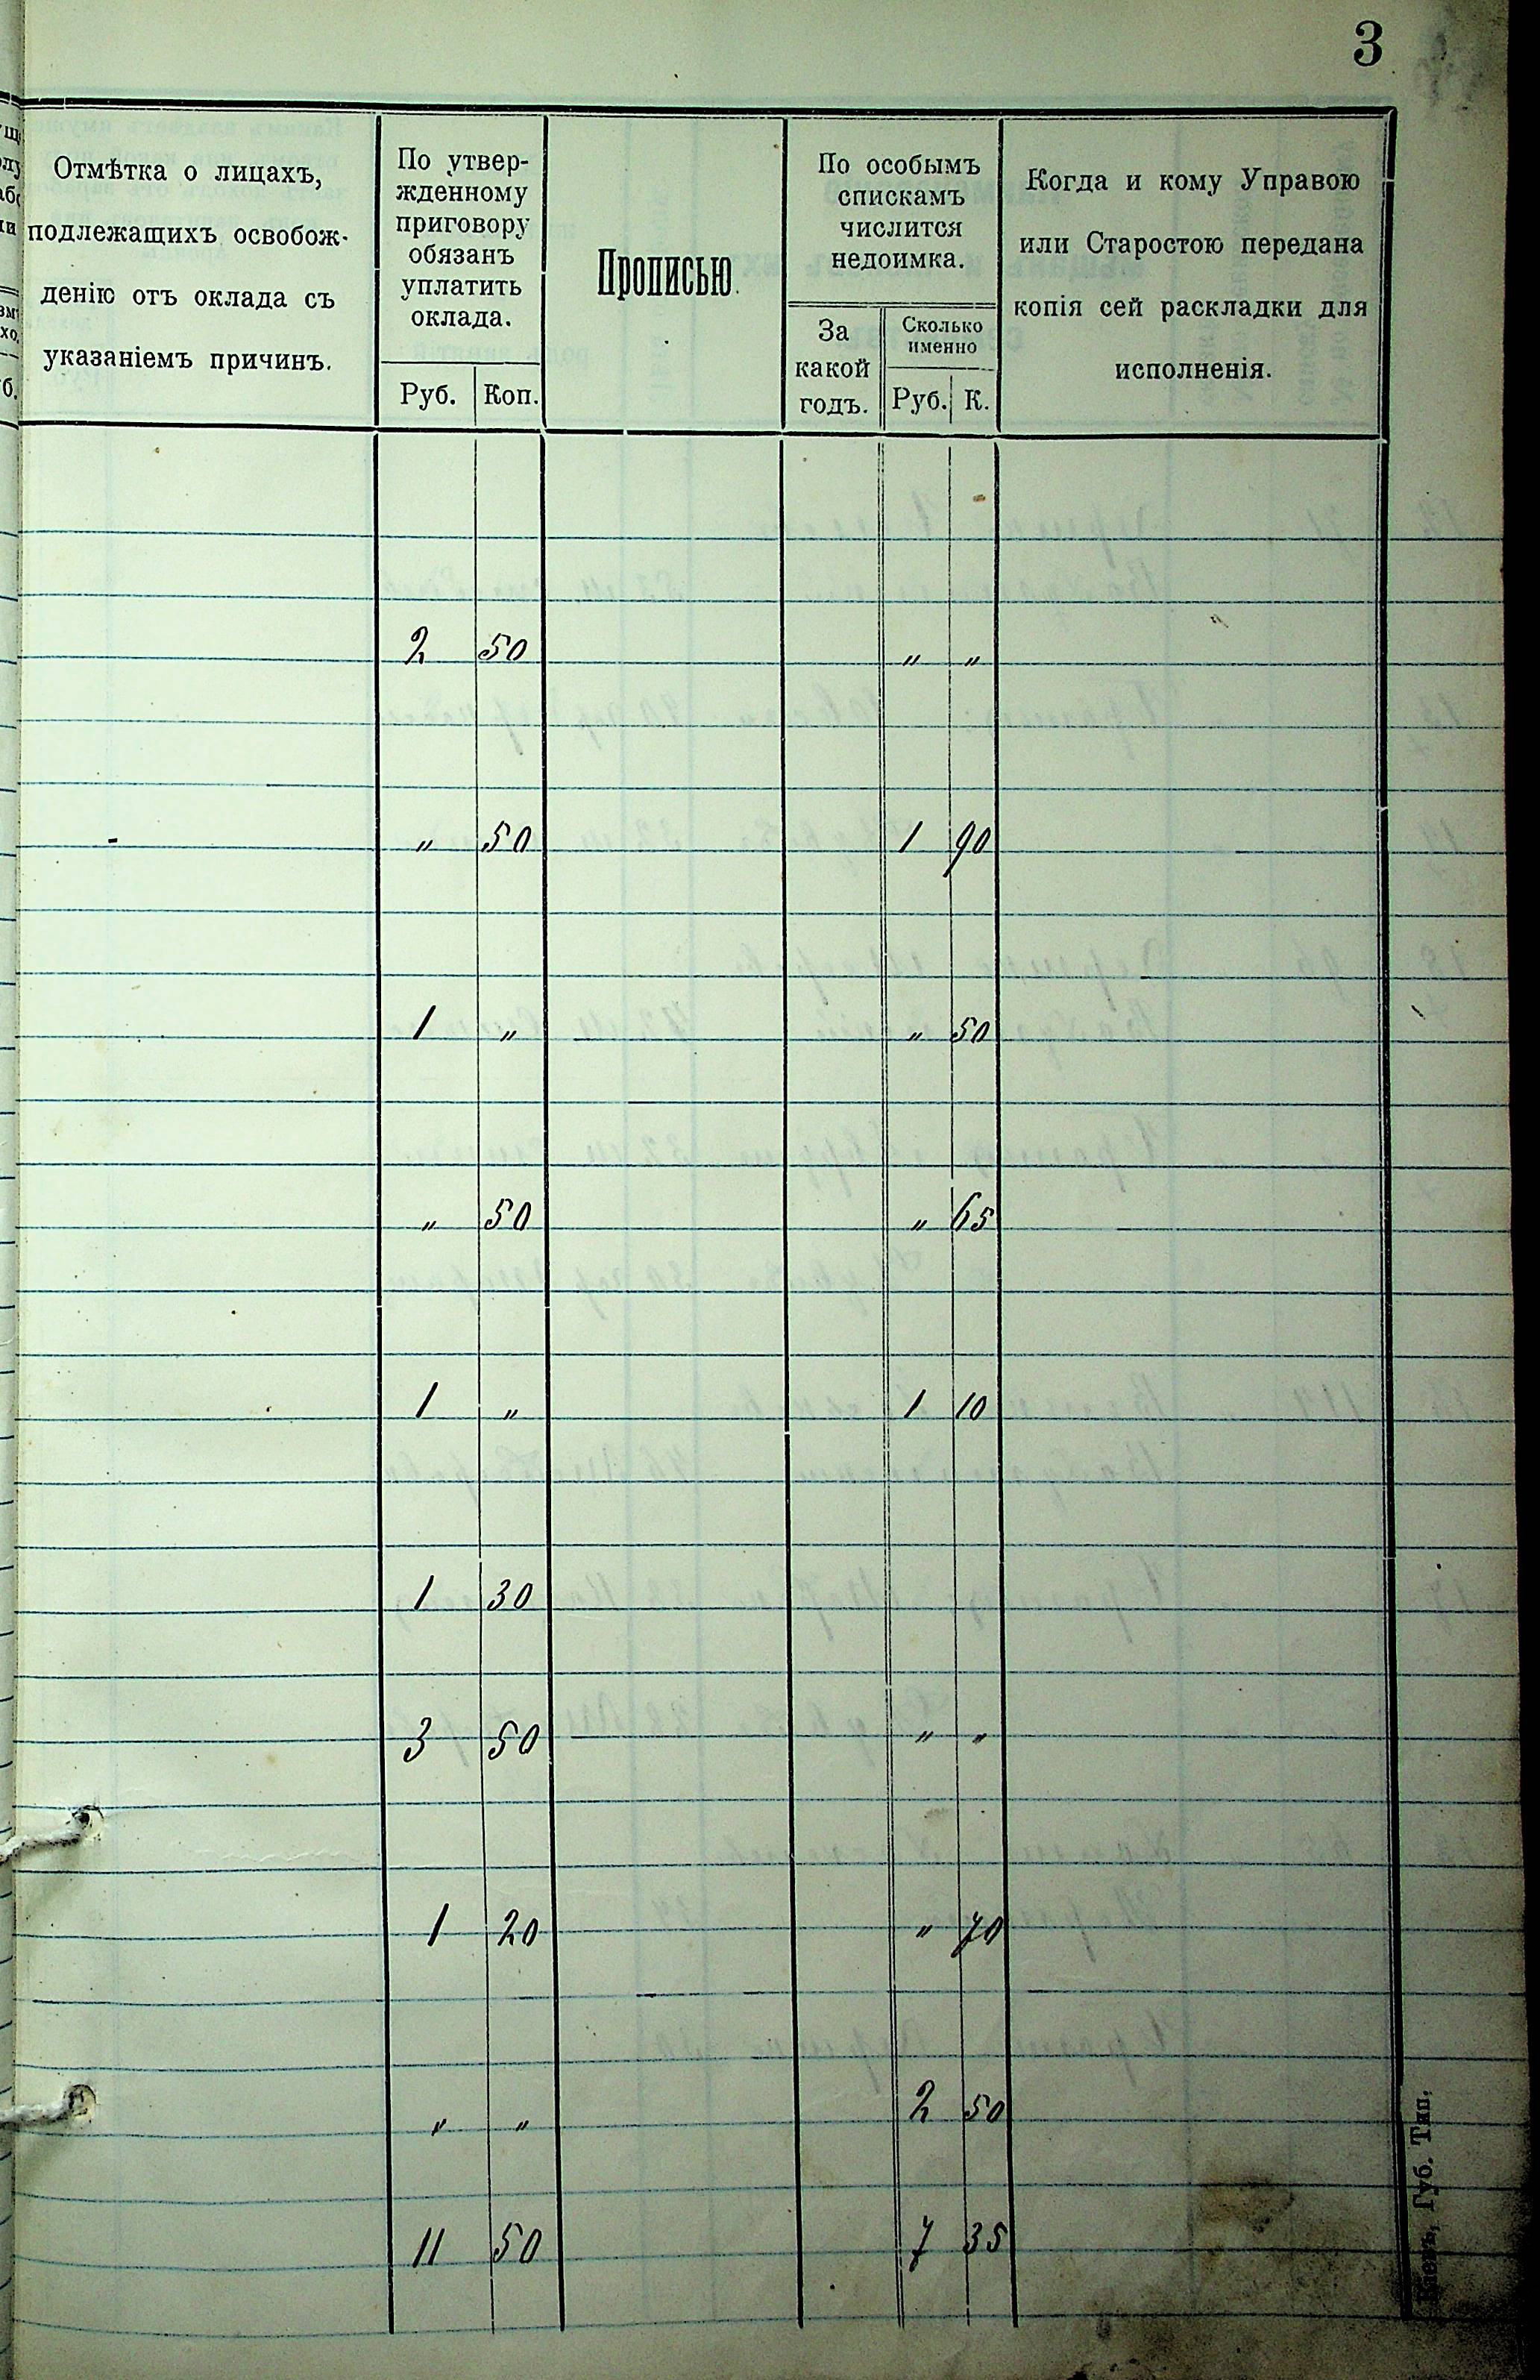 3
Отмѣтка о лицахъ,
подлежащихъ освобож-
денію отъ оклада съ
указаніемъ причинъ.
По утвер-
жденному
приговору
обязанъ
уплатить
оклада.
Руб. Коп.
Прописью.
По особымъ
спискамъ
числится
недоимка.
За
какой
годъ.
Сколько
именно
Руб. К.
Когда и кому Управою
или Старостою передана
копія сей раскладки для
исполненія.
2 50 „ „
„ 50 1 90
1 „ „ 50
„ 50 „ 65
1 „ 1 10
1 30
3 50 „ „
1 20 „ 70
„ „ 2 50
11 50 7 35
Губ. Тип.